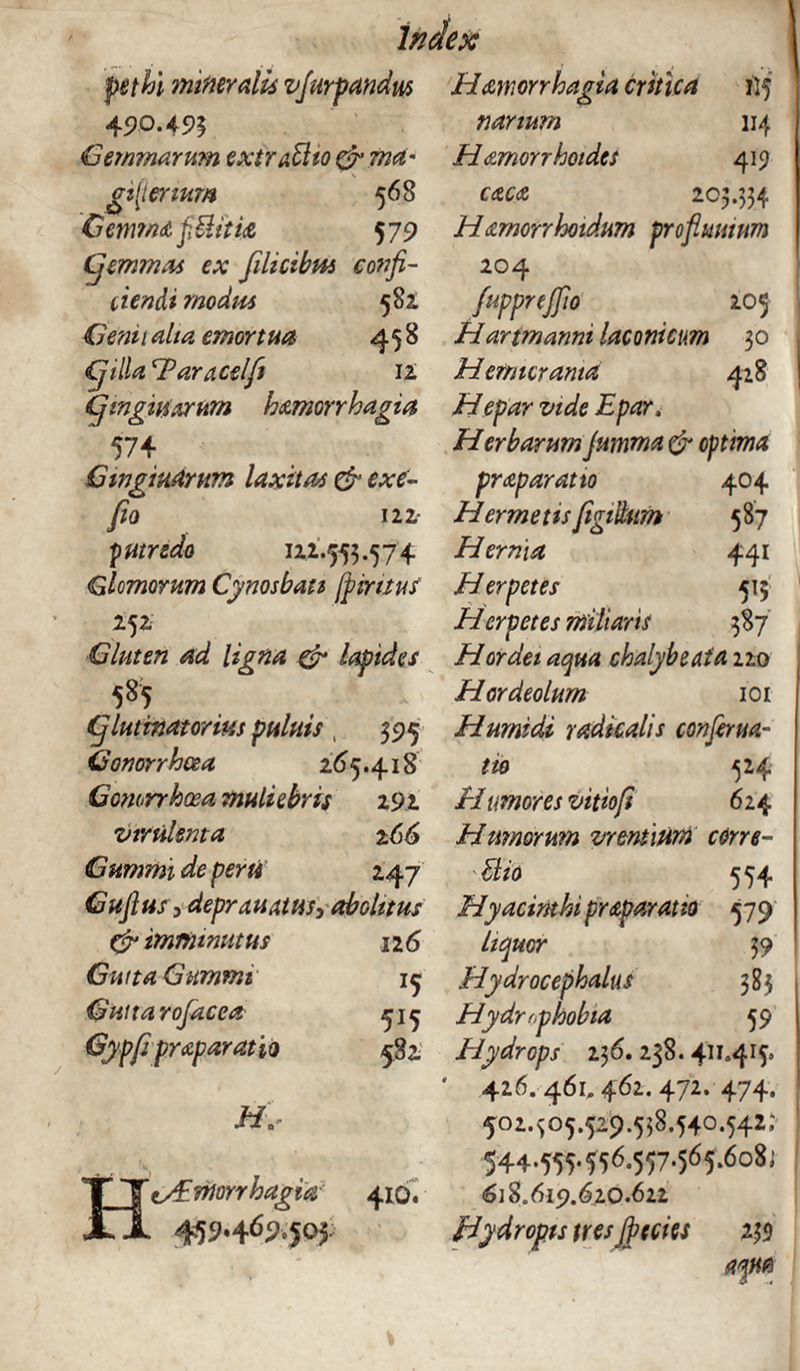 Index
pethi mineralis vſurpandus
490.493
Gemmarum extractio & ma-
giſterium 568
Gemmæ fictitiæ 579
Gemmas ex ſilicibus confi-
ciendi modus 582
Genitalia emortua 458
Gilla Paracelſi 12
Gingiuarum hæmorrhagia
574
Gingiuarum laxitas & exe-
ſio 122
putredo 122.553.574
Glomorum Cynosbati ſpiritus
252
Gluten ad ligna & lapides
585
Glutinatorius puluis 395
Gonorrhœa 265.418
Gonorrhœa muliebris 292
virulenta 266
Gummi de peru 247
Guſtus, deprauatus, abolitus
& imminutus 126
Gutta Gummi 15
Gutta roſacea 515
Gypſi præparatio 582
H.
HÆmorrhagia 410.
459.469.503
Hæmorrhagia critica 115
narium 114
Hæmorrhoides 419
cæcæ 203.334
Hæmorrhoidum profluuium
204
ſuppreſſio 205
Hartmanni laconicum 30
Hemicrania 428
Hepar vide Epar.
Herbarum ſumma & optima
præparatio 404
Hermetis ſigillum 587
Hernia 441
Herpetes 513
Herpetes miliaris 387
Hordei aqua chalybeata 220
Hordeolum 101
Humidi radicalis conſerua-
tio 524
Humores vitioſi 624
Humorum vrentium corre-
ctio 554
Hyacinthi præparatio 579
liquor 39
Hydrocephalus 383
Hydrophobia 59
Hydrops 236.238.411.415.
426.461.462.472.474.
502.505.529.538.540.542.
544.555.556.557.565.608.
618.619.620.622
Hydropis tres ſpecies 239
aqua